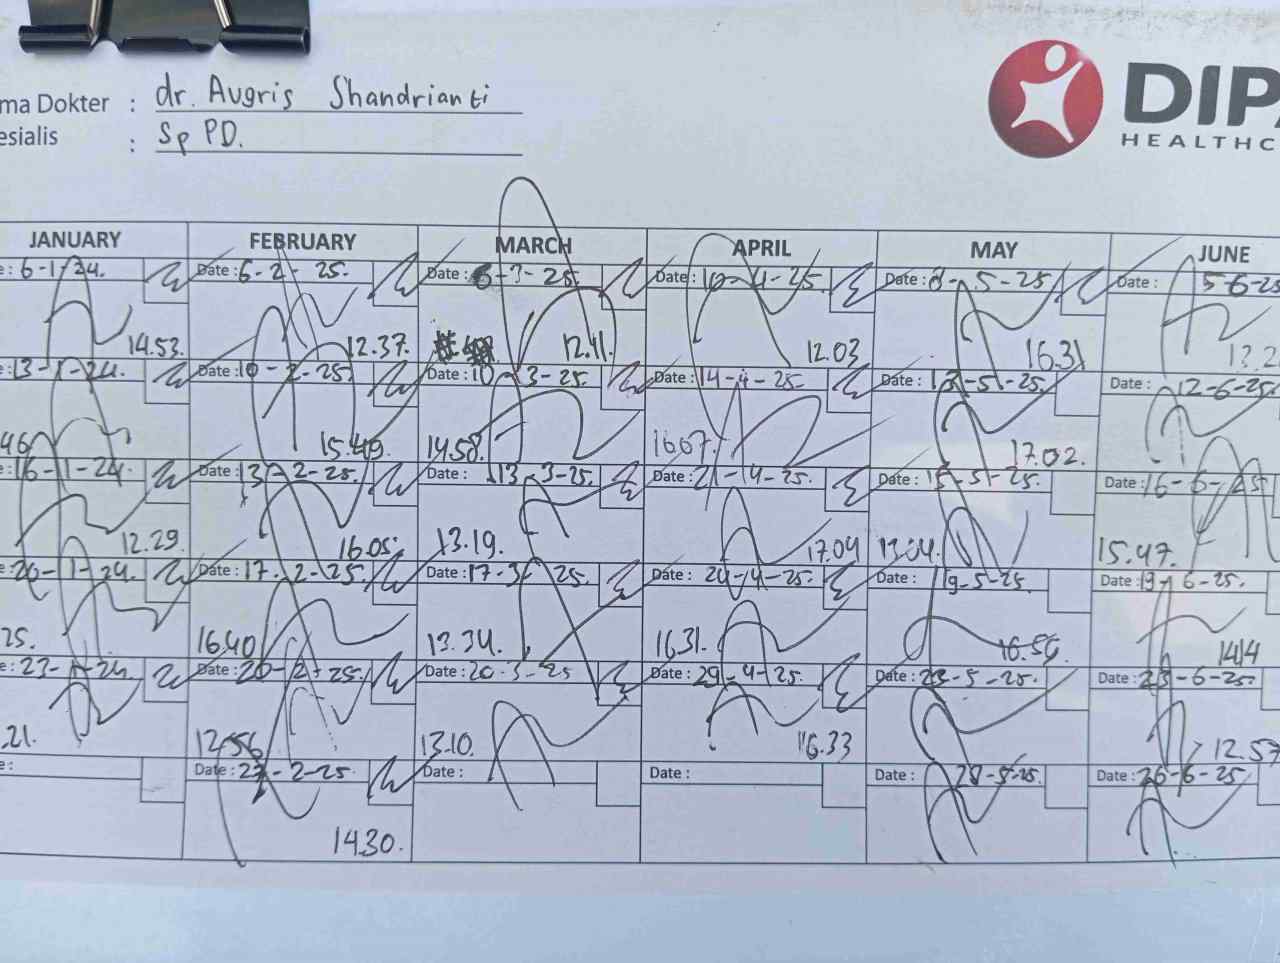 ma Dokter : dr. Augris Shandrianti
esialis : Sp PD.
DIPA
HEALTHC
JANUARY FEBRUARY MARCH APRIL MAY JUNE
e: 6-1-24. Date: 6-2-25. Date: 6-3-25. Date: 10-4-25. Date: 8-5-25 Date: 5-6-25
14.53. 12.37. 12.11. 12.03 16.31 13.2
e: 13-1-24. Date: 10-2-25. Date: 10-3-25. Date: 14-4-25. Date: 13-5-25. Date: 12-6-25.
46 15.49. 14.58. 16.07. 17.02.
e: 16-1-24. Date: 13-2-25. Date: 13-3-25. Date: 21-4-25. Date: 15-5-25. Date: 16-6-25
12.29. 16.05. 13.19. 17.04 13.04. 15.47.
e: 20-1-24. Date: 17-2-25. Date: 17-3-25. Date: 24-4-25. Date: 19-5-25. Date: 19-6-25.
25. 16.40 13.34. 16.31. 16.56. 14.14
e: 23-1-24. Date: 20-2-25. Date: 20-3-25 Date: 29-4-25. Date: 22-5-25. Date: 23-6-25.
.21. 12.56 13.10. 16.33 12.57
e: Date: 27-2-25. Date: Date: Date: 28-5-25. Date: 26-6-25.
14.30.